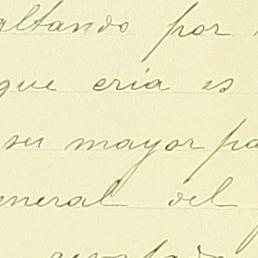 altando por
que cria es
su mayor pa
eneral del